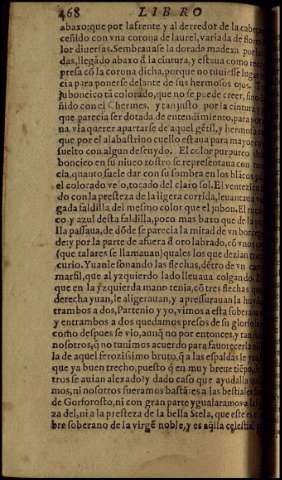 468 LIBRO
abaxo: que por la frente y al derredor de la cabeça
ceñido con vna corona de laurel, variada de
lor diuersas. Sembrauase la dorada madexa por la
das, llegãdo abaxo d̃ la cintura, y estaua como
presa cõ la corona dicha, porque no tuuiesse lugar
cia para ponerse delante de sus hermosos ojos. T
jubonsico tã colorado, que no se puede creer, fino
ñido con el Chermes, y tan justo por la cintura y
que parecia ser dotada de entendimiento, para
na via querer apartarse de aquel gẽtil, y hermoso
que por el alabastrino cuello estaua para mayor
suelto con algun desenydo. El color purpureo
boncico en su niueo rostro se representaua con
cia, quanto suele dar con su sombra en los blãcos
el colorado velo, tocado del claro sol. El ventezico
do con la presteza de la ligera corrida, leuantaua
gada faldilla del mesmo color que el jubon. El
co y azul desta faldilla, poco mas baxo que de la
lla passaua, de dõde se parecia la mitad de vn
der, y por la parte de afuera d̃ oro labrado, cõ vnos
(que talares se llamauan) quales los que dezian
curio. Yuanle sonando las flechas, dẽtro de vn
marfil, que al yzquierdo lado lleuaua colgando.
que en la yzquierda mano tenia, cõ tres flechas
derecha yuan, le aligerauan, y apressurauan la
trambos a dos, Partenio y yo, vimos a esta
y entrambos a dos quedamos presos de su
como despues se vio, aunq̃ no por entonces, y
nosotros, q̃ no tunimos acuerdo para fauorecer
la de aquel ferozissimo bruto, q̃ a las espaldas le
que ya buen trecho, puesto q̃ en muy breue tiẽpo,
tros se auian alexado: y dado caso que ayudalla
mos, ni nosotros fueramos bastãtes a las bestiales
de Gorforosto, ni con gran parte ygualaramos
za del, ni a la presteza de la bella Stela, que este es
bre soberano de la virgẽ noble, y es aq̃lla celestial